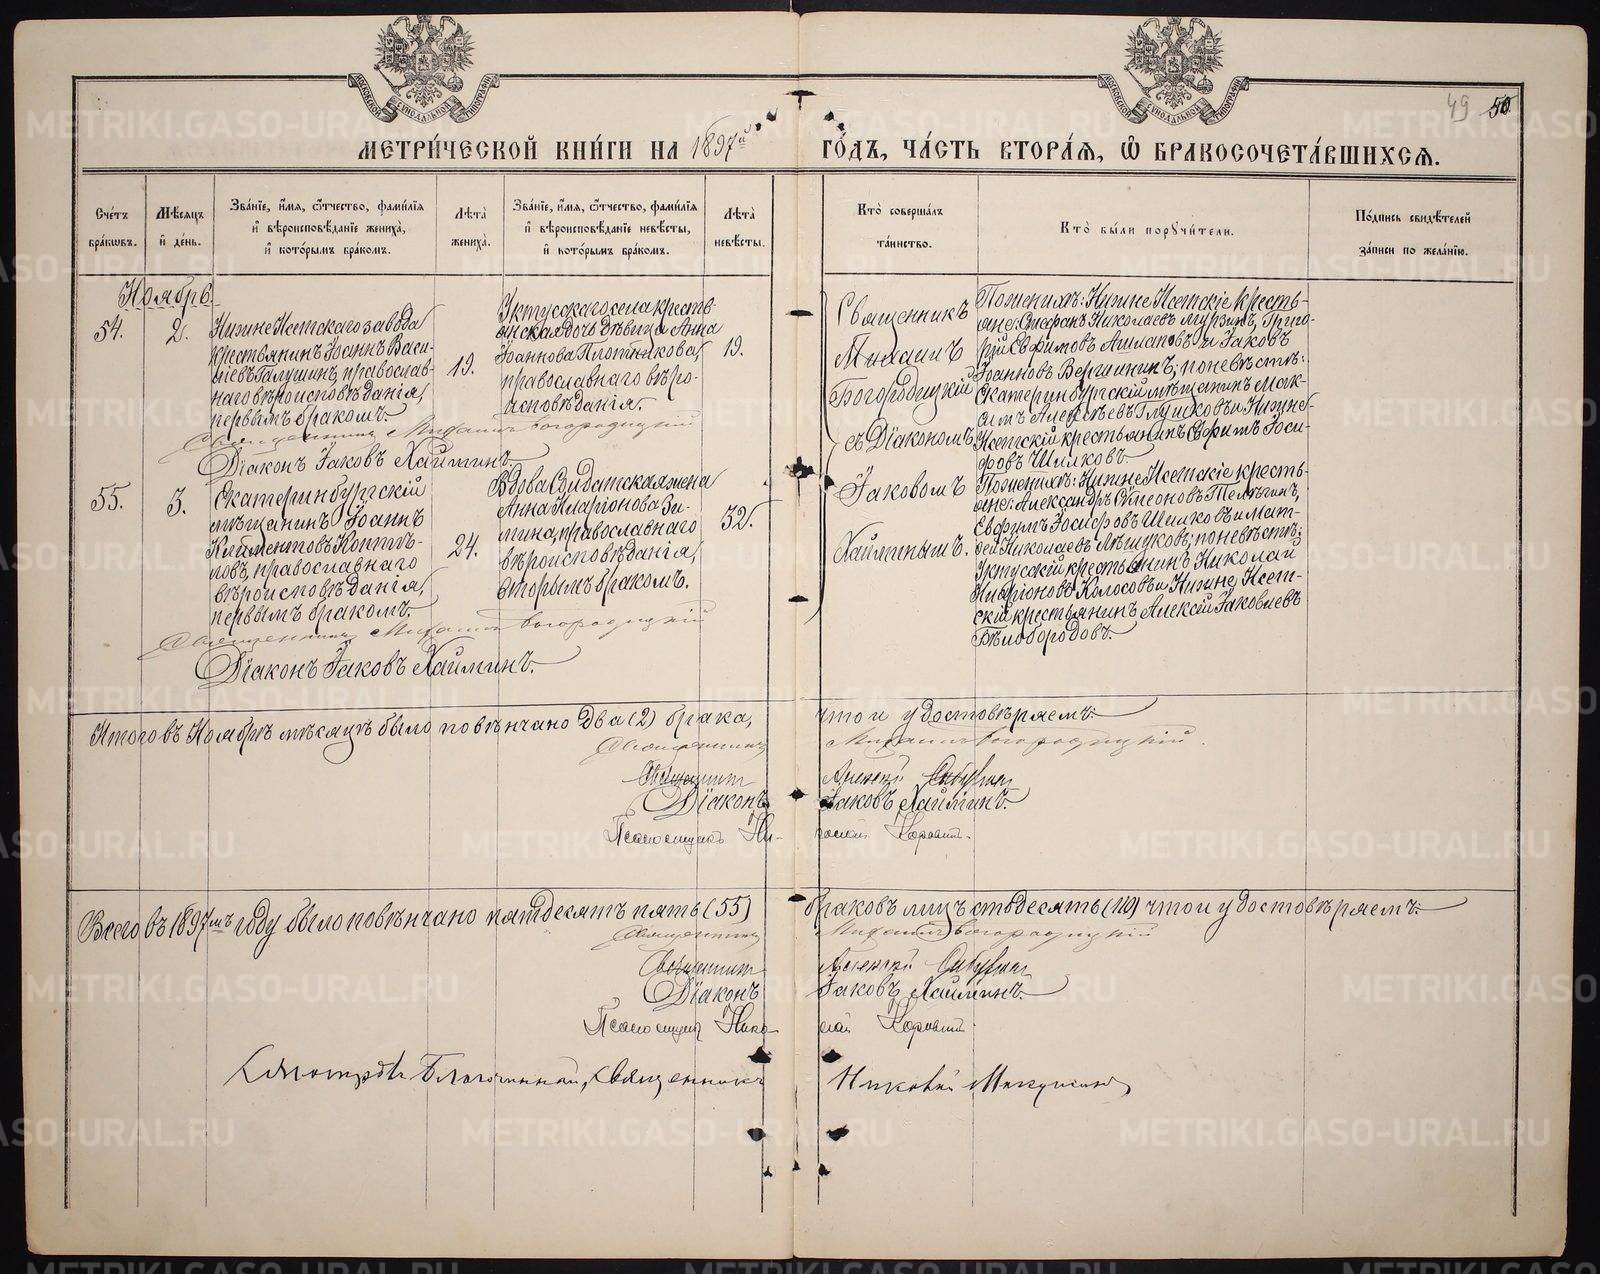 49 50.
МЕТРИ́ЧЕСКОЙ КНИ́ГИ НА 1897й ГО́ДЪ, ЧА́СТЬ ВТОРА́Я, Ѡ БРАКОСОЧЕТА́ВШИХСЯ.
Сче́тъ бра́кѡвъ.
Мѣ́сяцъ и де́нь.
Зва́нїе, и́мя, ѻ́тчество, фами́лїя и вѣроисповѣ́данїе жениха̀, и кото́рымъ бра́комъ.
Лѣ́та жениха̀.
Зва́нїе, и́мя, ѻ́тчество, фами́лїя и вѣроисповѣ́данїе невѣ́сты, и кото́рымъ бра́комъ.
Лѣ́та невѣ́сты.
Кто̀ соверша́лъ та́инство.
Кто̀ бы́ли порꙋчи́тели.
По́дпись свидѣ́телей за́писи по жела́нїю.
Ноябрь.
54.
2.
Нижне Исетскаго завода
крестьянинъ Іоаннъ Васи-
ліевъ Галушинъ, православ-
наго вѣроисповѣданія,
первымъ бракомъ.
19.
Уктусскаго села кресть-
янская дочь дѣвица Анна
Іоаннова Плотникова,
православнаго вѣро-
исповѣданія.
19.
Священникъ
Михаилъ
Богородицкій
съ Діакономъ
Іаковомъ
Хайминымъ.
По женихѣ: Нижне Исетскіе кресть-
яне: Стефанъ Николаевъ Мурзинъ, Григо-
рій Евфимовъ Ашлаповъ и Іаковъ
Іоанновъ Вершининъ; по невѣстѣ:
Екатеринбургскій мѣщанинъ Мак-
симъ Алексѣевъ Глушковъ и Нижне-
Исетскій крестьянинъ Евфимъ Іоси-
фовъ Шилковъ.
Священникъ Михаилъ Богородицкій
Діаконъ Іаковъ Хайминъ.
55.
3.
Екатеринбургскій
мѣщанинъ Іоаннъ
Климентовъ Коптѣ-
ловъ, православнаго
вѣроисповѣданія,
первымъ бракомъ.
24.
Вдова Солдатская жена
Анна Иларіонова Зи-
мина, православнаго
вѣроисповѣданія,
вторымъ бракомъ.
32.
По женихѣ: Нижне Исетскіе кресть-
яне: Александръ Симеоновъ Телѣгинъ,
Евфимъ Іосифовъ Шилковъ и Мат-
ѳей Николаевъ Мѣшуковъ; по невѣстѣ:
Уктусскій крестьянинъ Николай
Колосовъ и Нижне Исет-
скій крестьянинъ Алексій Іаковлевъ
Бѣлобородовъ.
Священникъ Михаилъ Богородицкій
Діаконъ Іаковъ Хайминъ.
Итого въ Ноябрѣ мѣсяцѣ было повѣнчано два (2) брака, что и удостовѣряемъ:
Священникъ Михаилъ Богородицкій.
Священникъ Алексій
Діаконъ Іаковъ Хайминъ.
Псаломщикъ Николай Коровинъ.
Всего въ 1897мъ году было повѣнчано пятдесятъ пять (55) браковъ лицъ сто десять (110) что и удостовѣряемъ:
Священникъ Михаилъ Богородицкій
Священникъ Алексій
Діаконъ Іаковъ Хайминъ.
Псаломщикъ Николай Коровинъ.
Смотрѣлъ Благочинный, Священникъ
METRIKI.GASO-URAL.RU